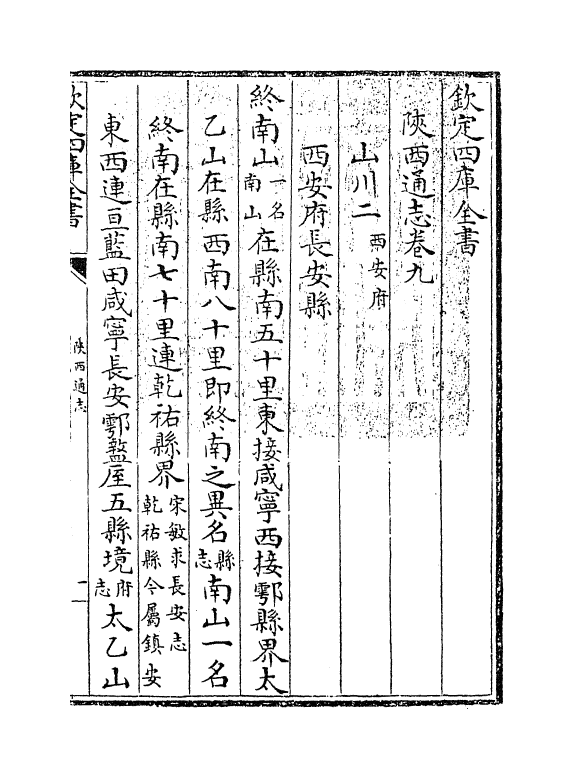 欽定四庫全書
陜西通志卷九
山川二 西安府
西安府長安縣
終南山一名南山在縣南五十里東接咸寧西接鄠縣界太
乙山在縣西南八十里即終南之異名縣志南山一名
終南在縣南七十里連乾祐縣界宋敏求長安志乾祐縣今屬鎮安
東西連亘藍田咸寧長安鄠盩厔五縣境府志太乙山
欽定四庫全書
陜西通志
一